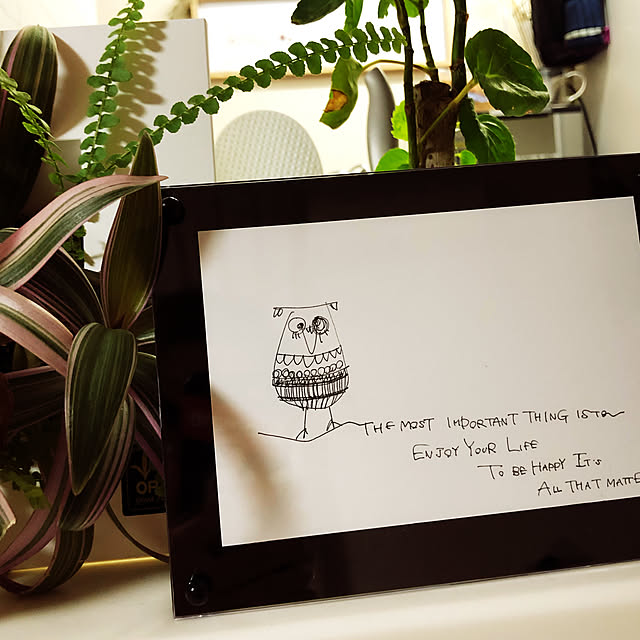 THE MOST IMPORTANT THING IS TO
ENJOY YOUR LIFE
TO BE HAPPY IT'S
ALL THAT MATTE
OR